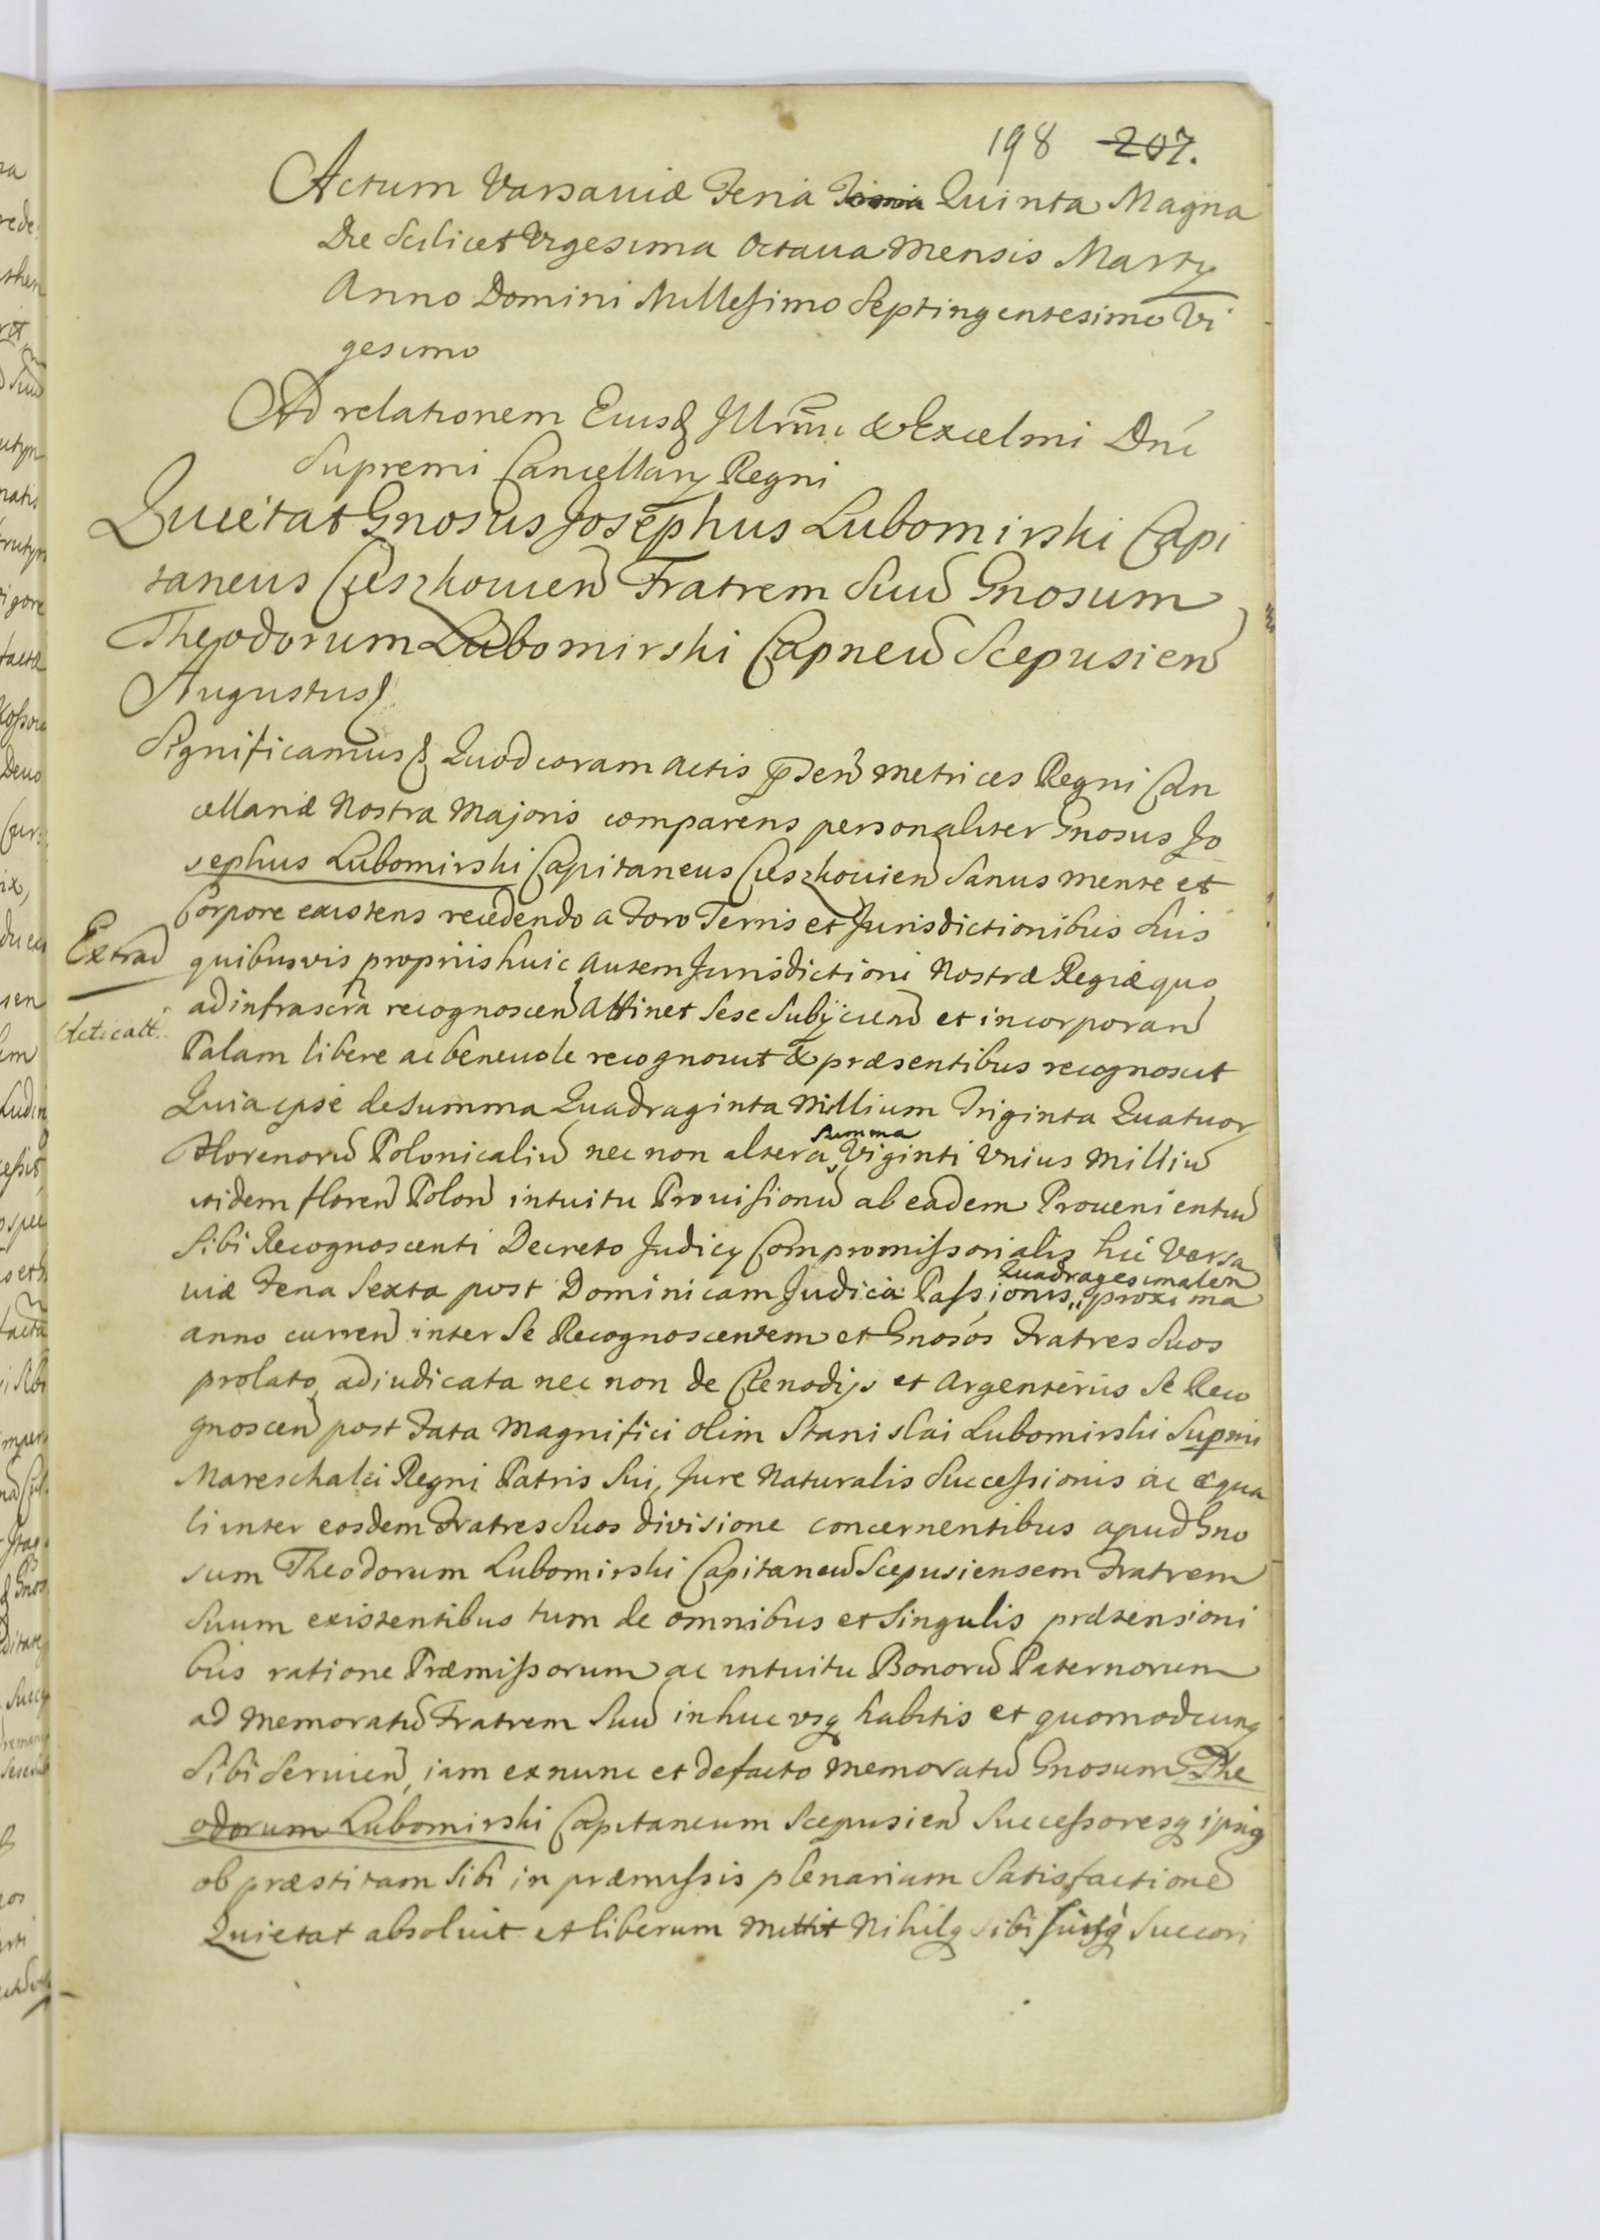 198 207.
Actum Varsaviæ Feria Quinta Magna
Die Scilicet Vigesima Octava Mensis Martÿ
Anno Domini Millesimo Septingentesimo Vi
gesimo
Ad relationem Eiusd Illrmi & Excelmi Dni
Supremi Cancellarÿ Regni
Quietat Gnosus Josephus Lubomirski Capi
taneus Cieszkovien Fratrem Suu Gnosum
Theodorum Lubomirski Capneu Scepusien
Augustus
Significamus Quod coram Actis Metrices Regni Can
cellariæ Nostræ Majoris comparens personaliter Gnosus Jo
sephus Lubomirski Capitaneus Cieszkovien Sanus mente et
Corpore existens recedendo a Foro Terris et Jurisdictionibus Suis
Extrad quibusvis propriis huic autem Jurisdictioni Nostræ Regiæ quo
ad infrascra recognoscen Attinet Sese Subÿcien et incorporan
Acticatt.
Palam libere ac benevole recognovit & præsentibus recognoscit
Quia ipse de summa Quadraginta Millium Triginta Quatuor
Florenoru Polonicaliu nec non altera summa Viginti Unius Milliu
itidem floren Polon intuitu Provisionu ab eadem Provenientiu
Sibi Recognoscenti Decreto Judicÿ Compromissorialis hic Varsa
viæ Feria Sexta post Dominicam Judica Passionis Quadragesimalem proxima
anno curren inter Se Recognoscentem et Gnosos Fratres Suos
prolato adiudicata nec non de Clenodÿs et Argenteriis Se Reco
gnoscen post Fata Magnifici olim Stanislai Lubomirski Supmi
Mareschalci Regni Patris Sui, Jure Naturalis Successionis ac æqua
li inter eosdem Fratres Suos divisione concernentibus apud Gno
sum Theodorum Lubomirski Capitaneu Scepusiensem Fratrem
Suum existentibus tum de omnibus et Singulis prætensioni
bus ratione Præmissorum ac intuitu Bonoru Paternorum
ad Memoratu Fratrem Suu in huc usq habitis et quomodcunq
Sibi Servien, iam ex nunc et defacto memoratu Gnosum The
odorum Lubomirski Capitaneum Scepusien Successoresq ipsius
ob præstitam Sibi in præmissis plenariam Satisfactione
Quietat absolvit et liberum Mittit Nihilq sibi suisq Succori